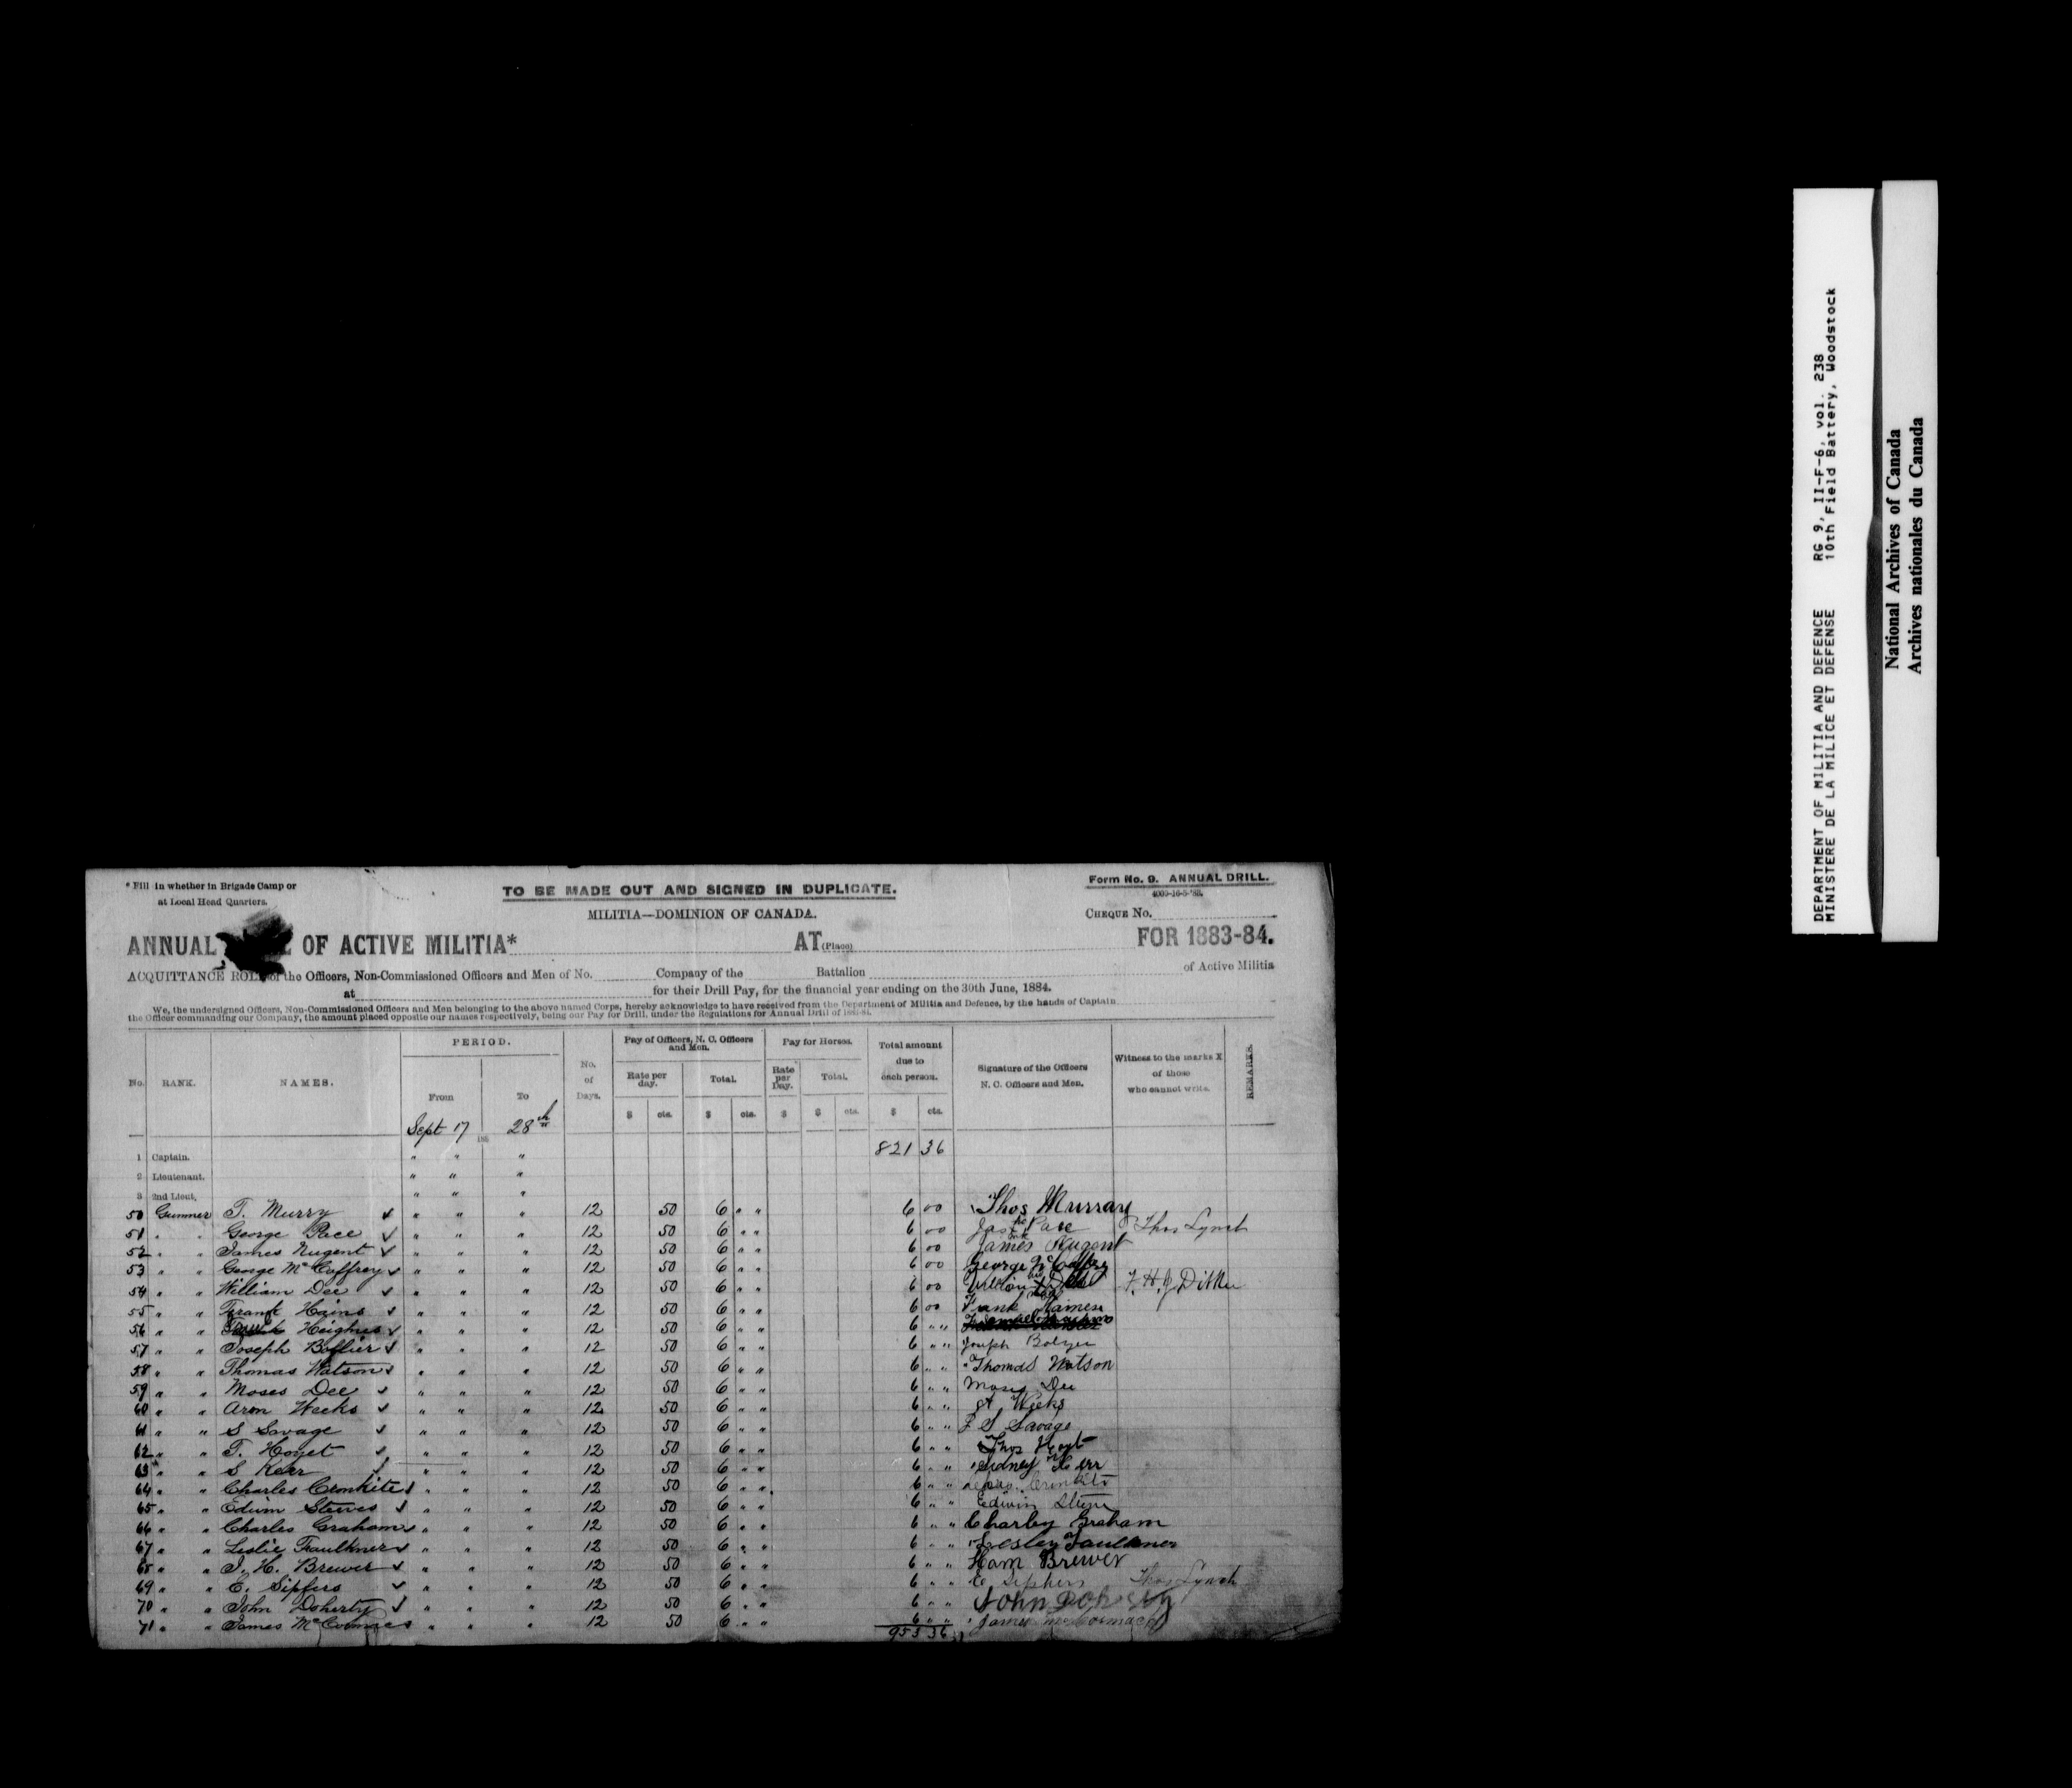 * Fill in whether in Brigade Camp or
at Local Head Quarters.
TO BE MADE OUT AND SIGNED IN DUPLICATE.
Form No. 9. ANNUAL DRILL.
MILITIA—DOMINION OF CANADA.
CHEQUE No.
ANNUAL OF ACTIVE MILITIA* AT (Place) FOR 1883-84.
ACQUITTANCE ROLL of the Officers, Non-Commissioned Officers and Men of No. Company of the Battalion of Active Militia
at for their Drill Pay, for the financial year ending on the 30th June, 1884.
We, the undersigned Officers, Non-Commissioned Officers and Men belonging to the above named Corps, hereby acknowledge to have received from the Department of Militia and Defence, by the hands of Captain
the Officer commanding our Company, the amount placed opposite our names respectively, being our Pay for Drill, under the Regulations for Annual Drill of 1883-84.
No. RANK. NAMES. PERIOD. From To No. of Days. Pay of Officers, N. C. Officers and Men. Rate per day. Total. Pay for Horses. Rate per Day. Total. Total amount due to each person. Signature of the Officers N. C. Officers and Men. Witness to the marks X of those who cannot write. REMARKS.
$ cts. $ cts. $ $ cts. $ cts.
Sept 17 188 28th
821 36
1 Captain. " " "
2 Lieutenant. " " "
3 2nd Lieut. " " "
50 Gunner T. Murry " " " 12 50 6 " " 6 00 Thos Murray
51 " " George Pace " " " 12 50 6 " " 6 00 Pace Thos Lynch
52 " " James Nugent " " " 12 50 6 " " 6 00 James Nugent
53 " " George McCaffrey " " " 12 50 6 " " 6 00 George McCaffrey
54 " " William Dee " " " 12 50 6 " " 6 00 William X Dee
55 " " Frank Hains " " " 12 50 6 " " 6 00 Frank Haines
56 " " Heighus " " " 12 50 6 " " 6 " "
57 " " Joseph " " " 12 50 6 " " 6 " " Joseph
58 " " Thomas Watson " " " 12 50 6 " " 6 " " Thomas Watson
59 " " Moses Dee " " " 12 50 6 " " 6 " " Moses Dee
60 " " Aron Weeks " " " 12 50 6 " " 6 " " A. Weeks
61 " " S Savage " " " 12 50 6 " " 6 " " S Savage
62 " " T. Hoyet " " " 12 50 6 " " 6 " " Thos Hoyt
63 " " S Kerr " " " 12 50 6 " " 6 " " Sidney Kerr
64 " " Charles Cronkite " " " 12 50 6 " " 6 " " Cronkite
65 " " Edwin Steves " " " 12 50 6 " " 6 " " Edwin
66 " " Charles Graham " " " 12 50 6 " " 6 " " Charley Graham
67 " " Leslie Faulkner " " " 12 50 6 " " 6 " " Lesley Faulkner
68 " " I. H. Brewer " " " 12 50 6 " " 6 " " Ham Brewer
69 " " E. Sipfers " " " 12 50 6 " " 6 " " E Siphers Thos Lynch
70 " " John Doherty " " " 12 50 6 " " 6 " " John
71 " " James McCormac " " " 12 50 6 " " 6 " " James McCormack
953 36
DEPARTMENT OF MILITIA AND DEFENCE RG 9, II-F-6, vol. 238
MINISTERE DE LA MILICE ET DEFENSE 10th Field Battery, Woodstock
National Archives of Canada
Archives nationales du Canada